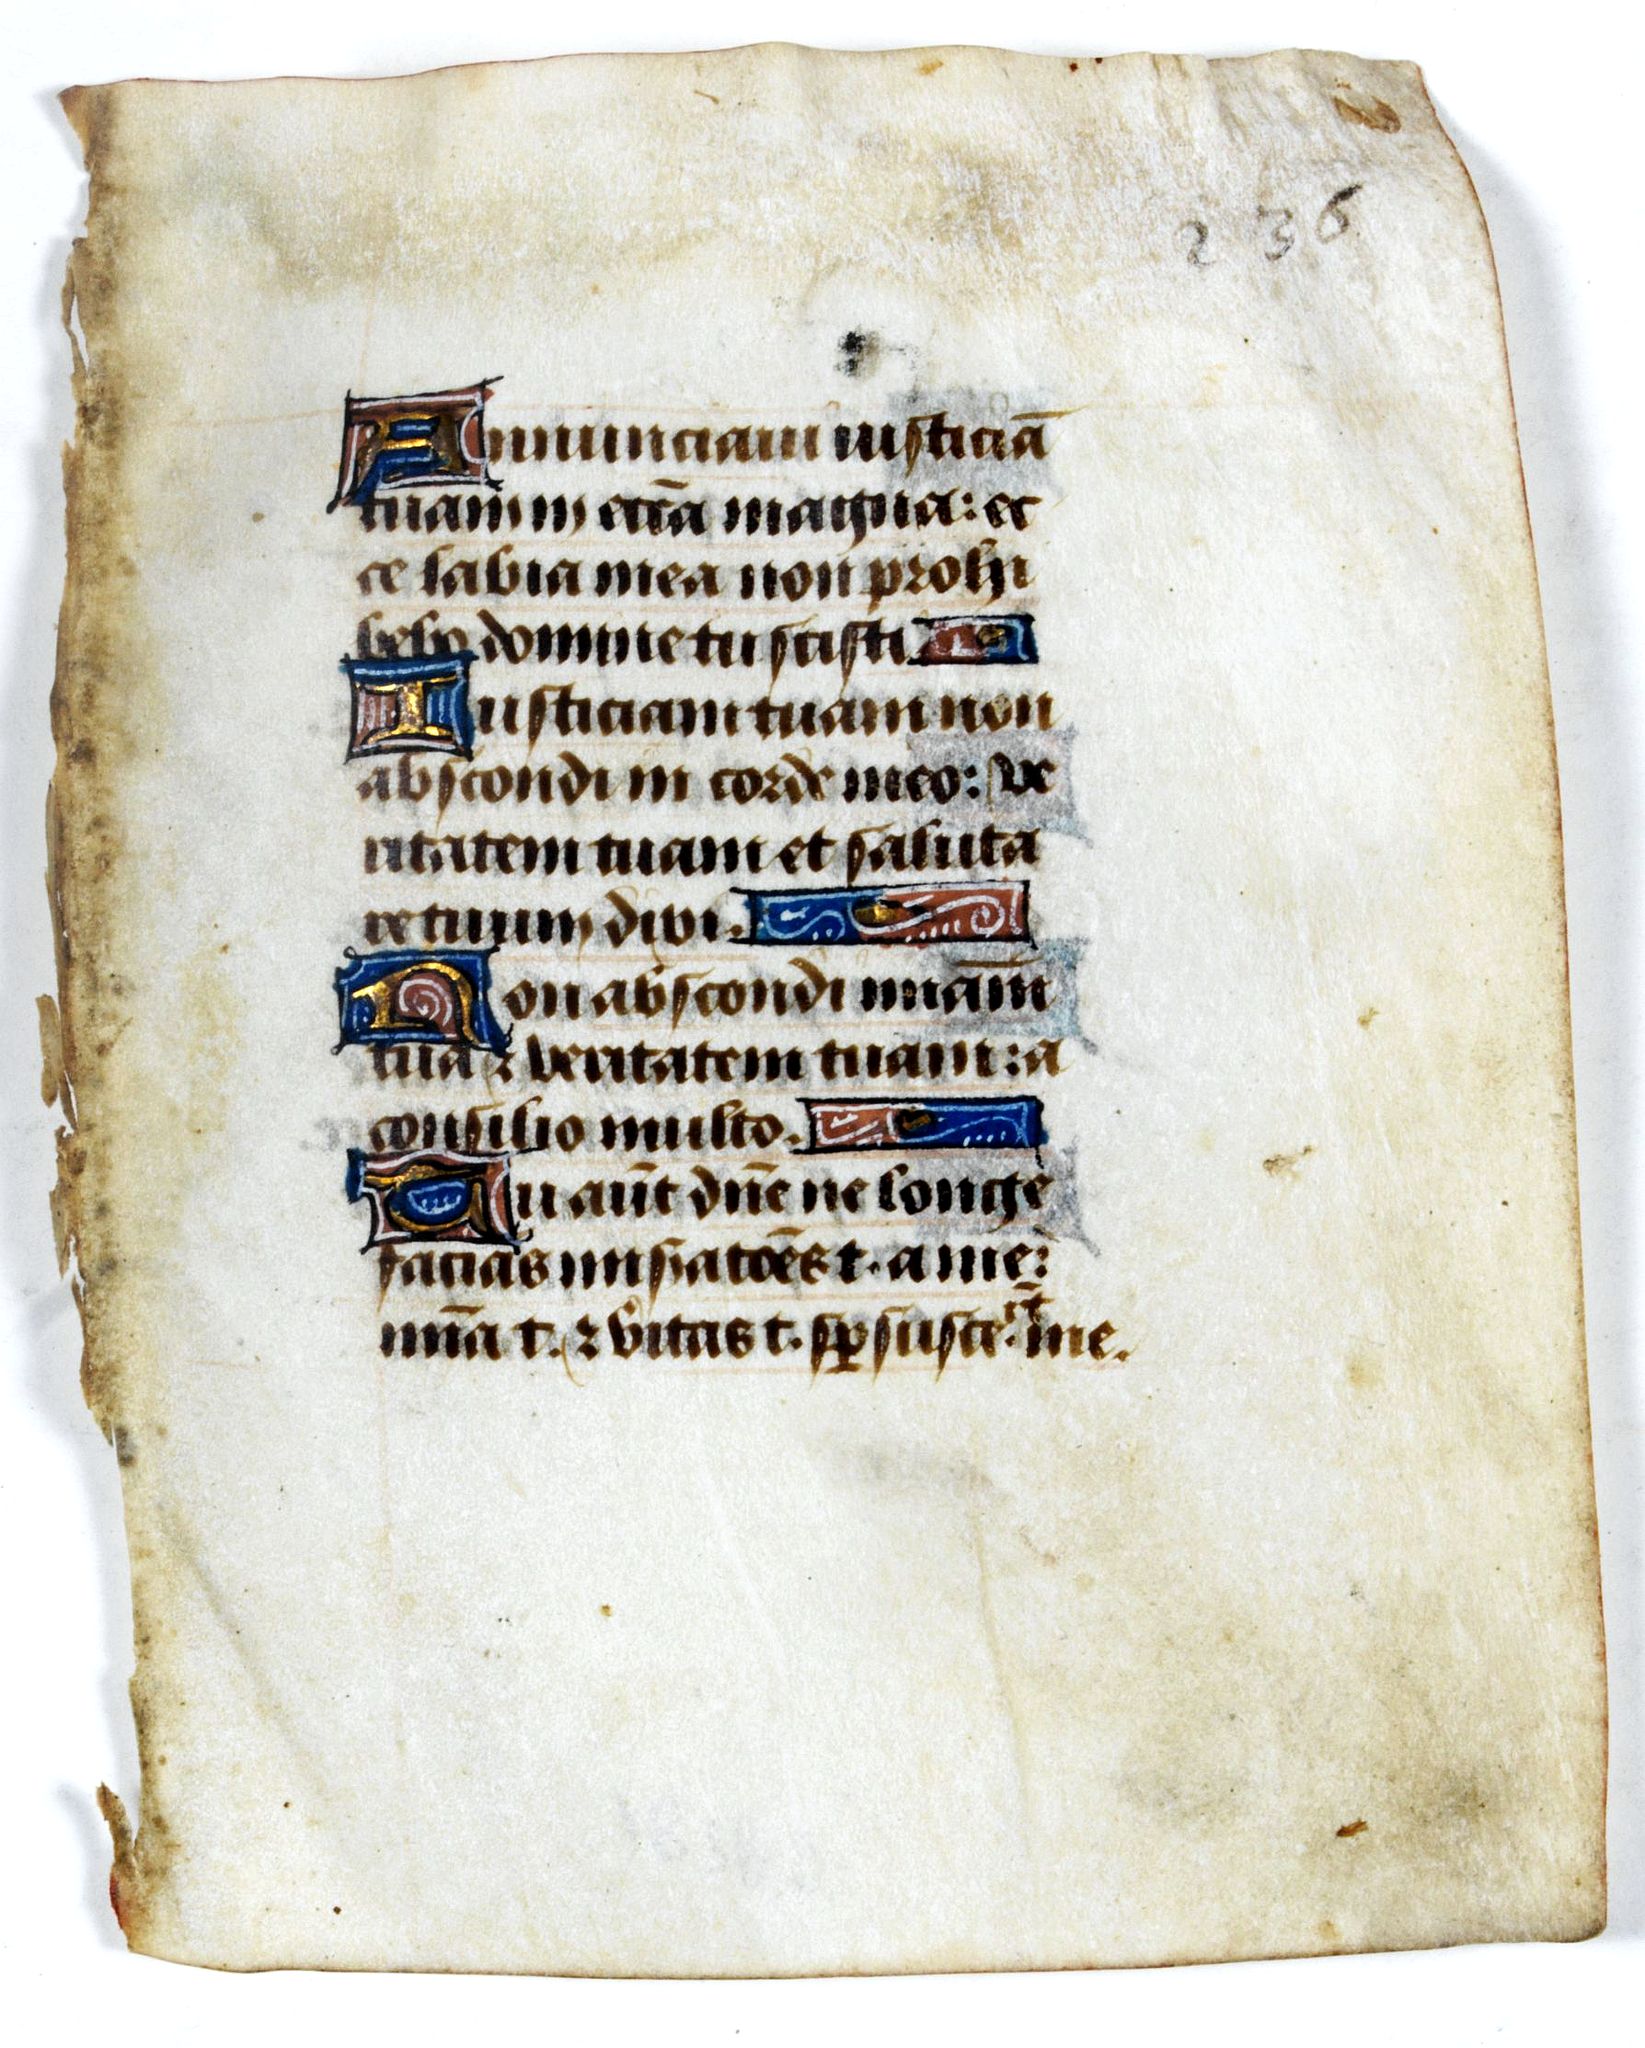 236
Annunciaui iusticiā
tuam in ecc̄a magna: ec
ce labia mea non prohi
bebo domine tu scisti.
Iusticiam tuam non
abscondi in corde meo: ve
ritatem tuam et saluta
re tuum dixi.
Non abscondi m̄iam
tuā ⁊ veritatem tuam: a
consilio multo.
Tu aūt dn̄e ne longe
facias miẜatōes t. a me:
mīa t. ⁊ vitas t. sp̄ susce.rūt me.